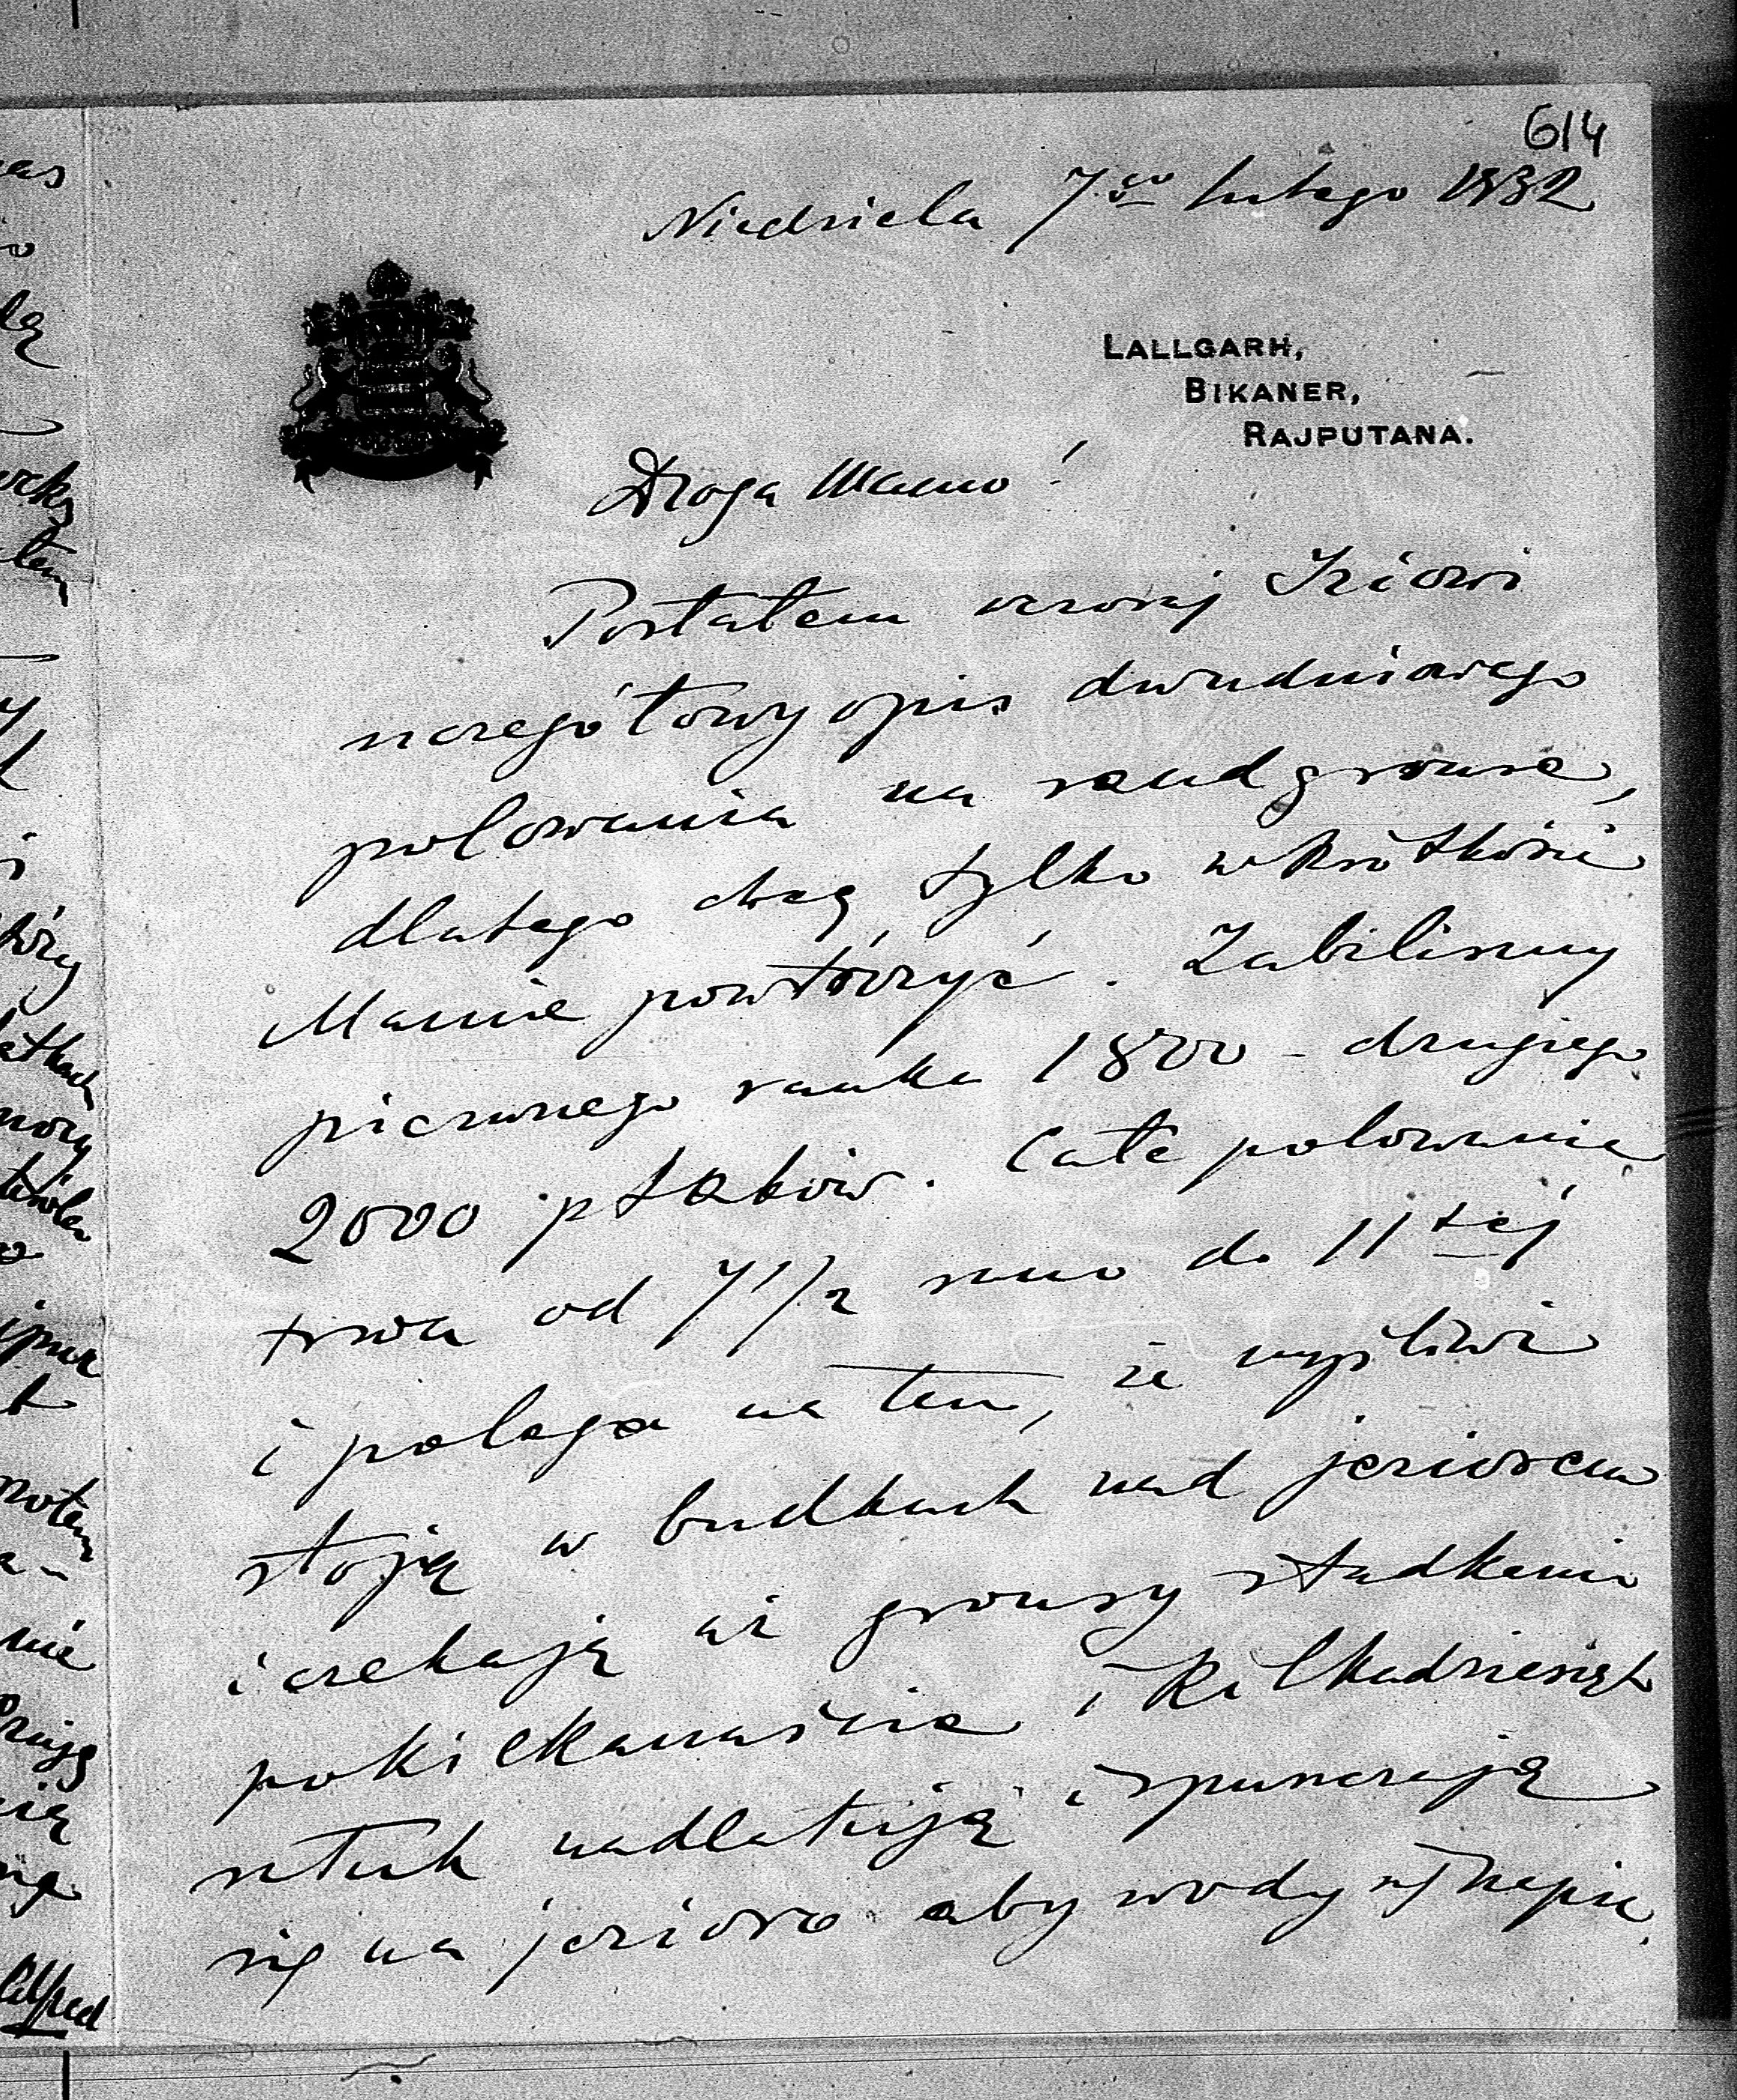 614
Niedziela 7go lutego 1932
LALLGARH,
BIKANER,
RAJPUTANA.
Droga Mamo!
Posłałem wczoraj Iziowi
szczegółowy opis dwudniowego
polowania na sandgrouse,
dlatego chcę tylko w krótkości
Mamie powtórzyć. Zabiliśmy
pierwszego ranka 1800 - drugiego
2000 ptaków. Całe polowanie
trwa od 7 1/2 rano do 11tej
i polega na tem, że myśliwi
stoją w budkach nad jeziorem
i czekają aż grousy stadkami
po kilkanaście i kilkadziesiąt
sztuk nadlatują i spuszczają
się na jezioro aby wody się napić.